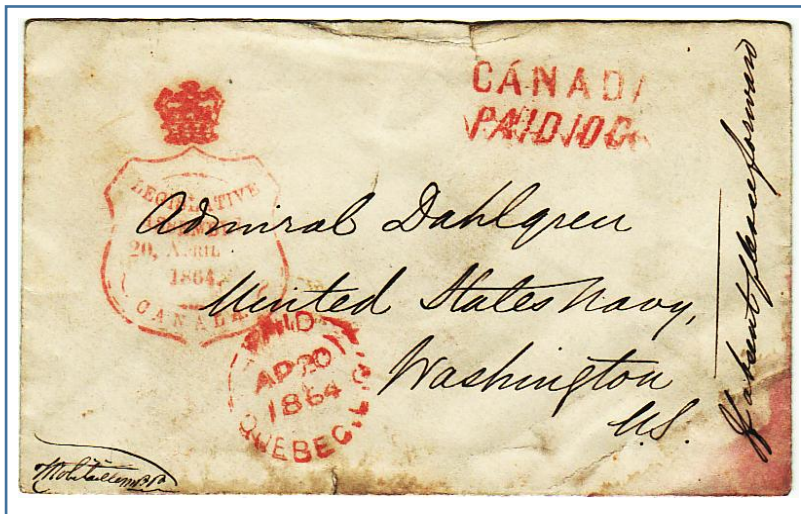 CANADA
PAID 10 C
LEGISLATIVE
ASSEMBLY
20, APRIL
1864.
CANADA
Admiral Dahlgren
United States Navy,
Washington
U.S.
PAID
AP 20
1864
QUEBEC. L.C.
If absent please forward